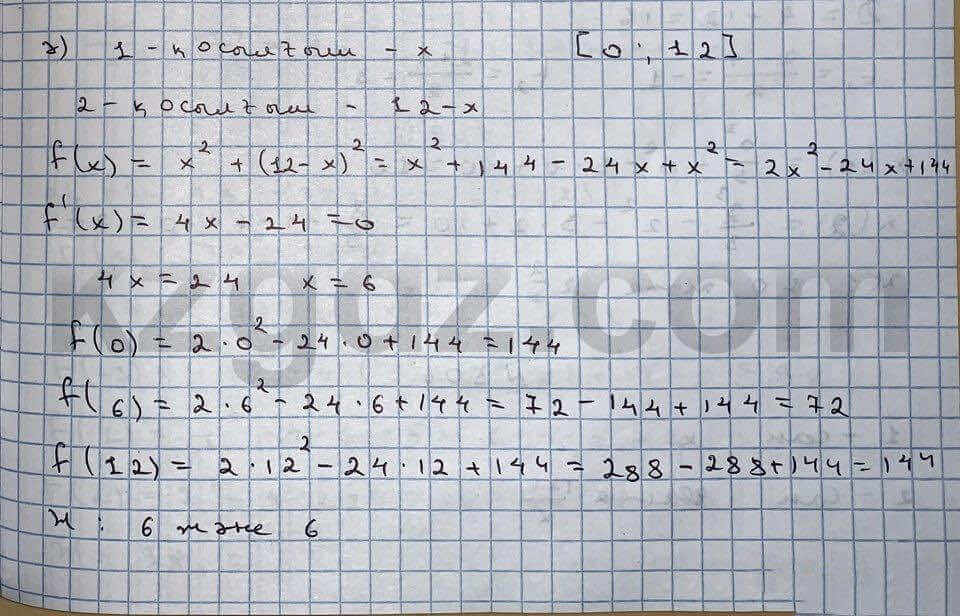 2) 1 - қосылғыш - x [0; 12]
2 - қосылғыш - 12-x
f(x) = x² + (12-x)² = x² + 144 - 24x + x² = 2x² - 24x + 144
f'(x) = 4x - 24 = 0
4x = 24 x = 6
f(0) = 2·0² - 24·0 + 144 = 144
f(6) = 2·6² - 24·6 + 144 = 72 - 144 + 144 = 72
f(12) = 2·12² - 24·12 + 144 = 288 - 288 + 144 = 144
Ж: 6 және 6
kzgdz.com